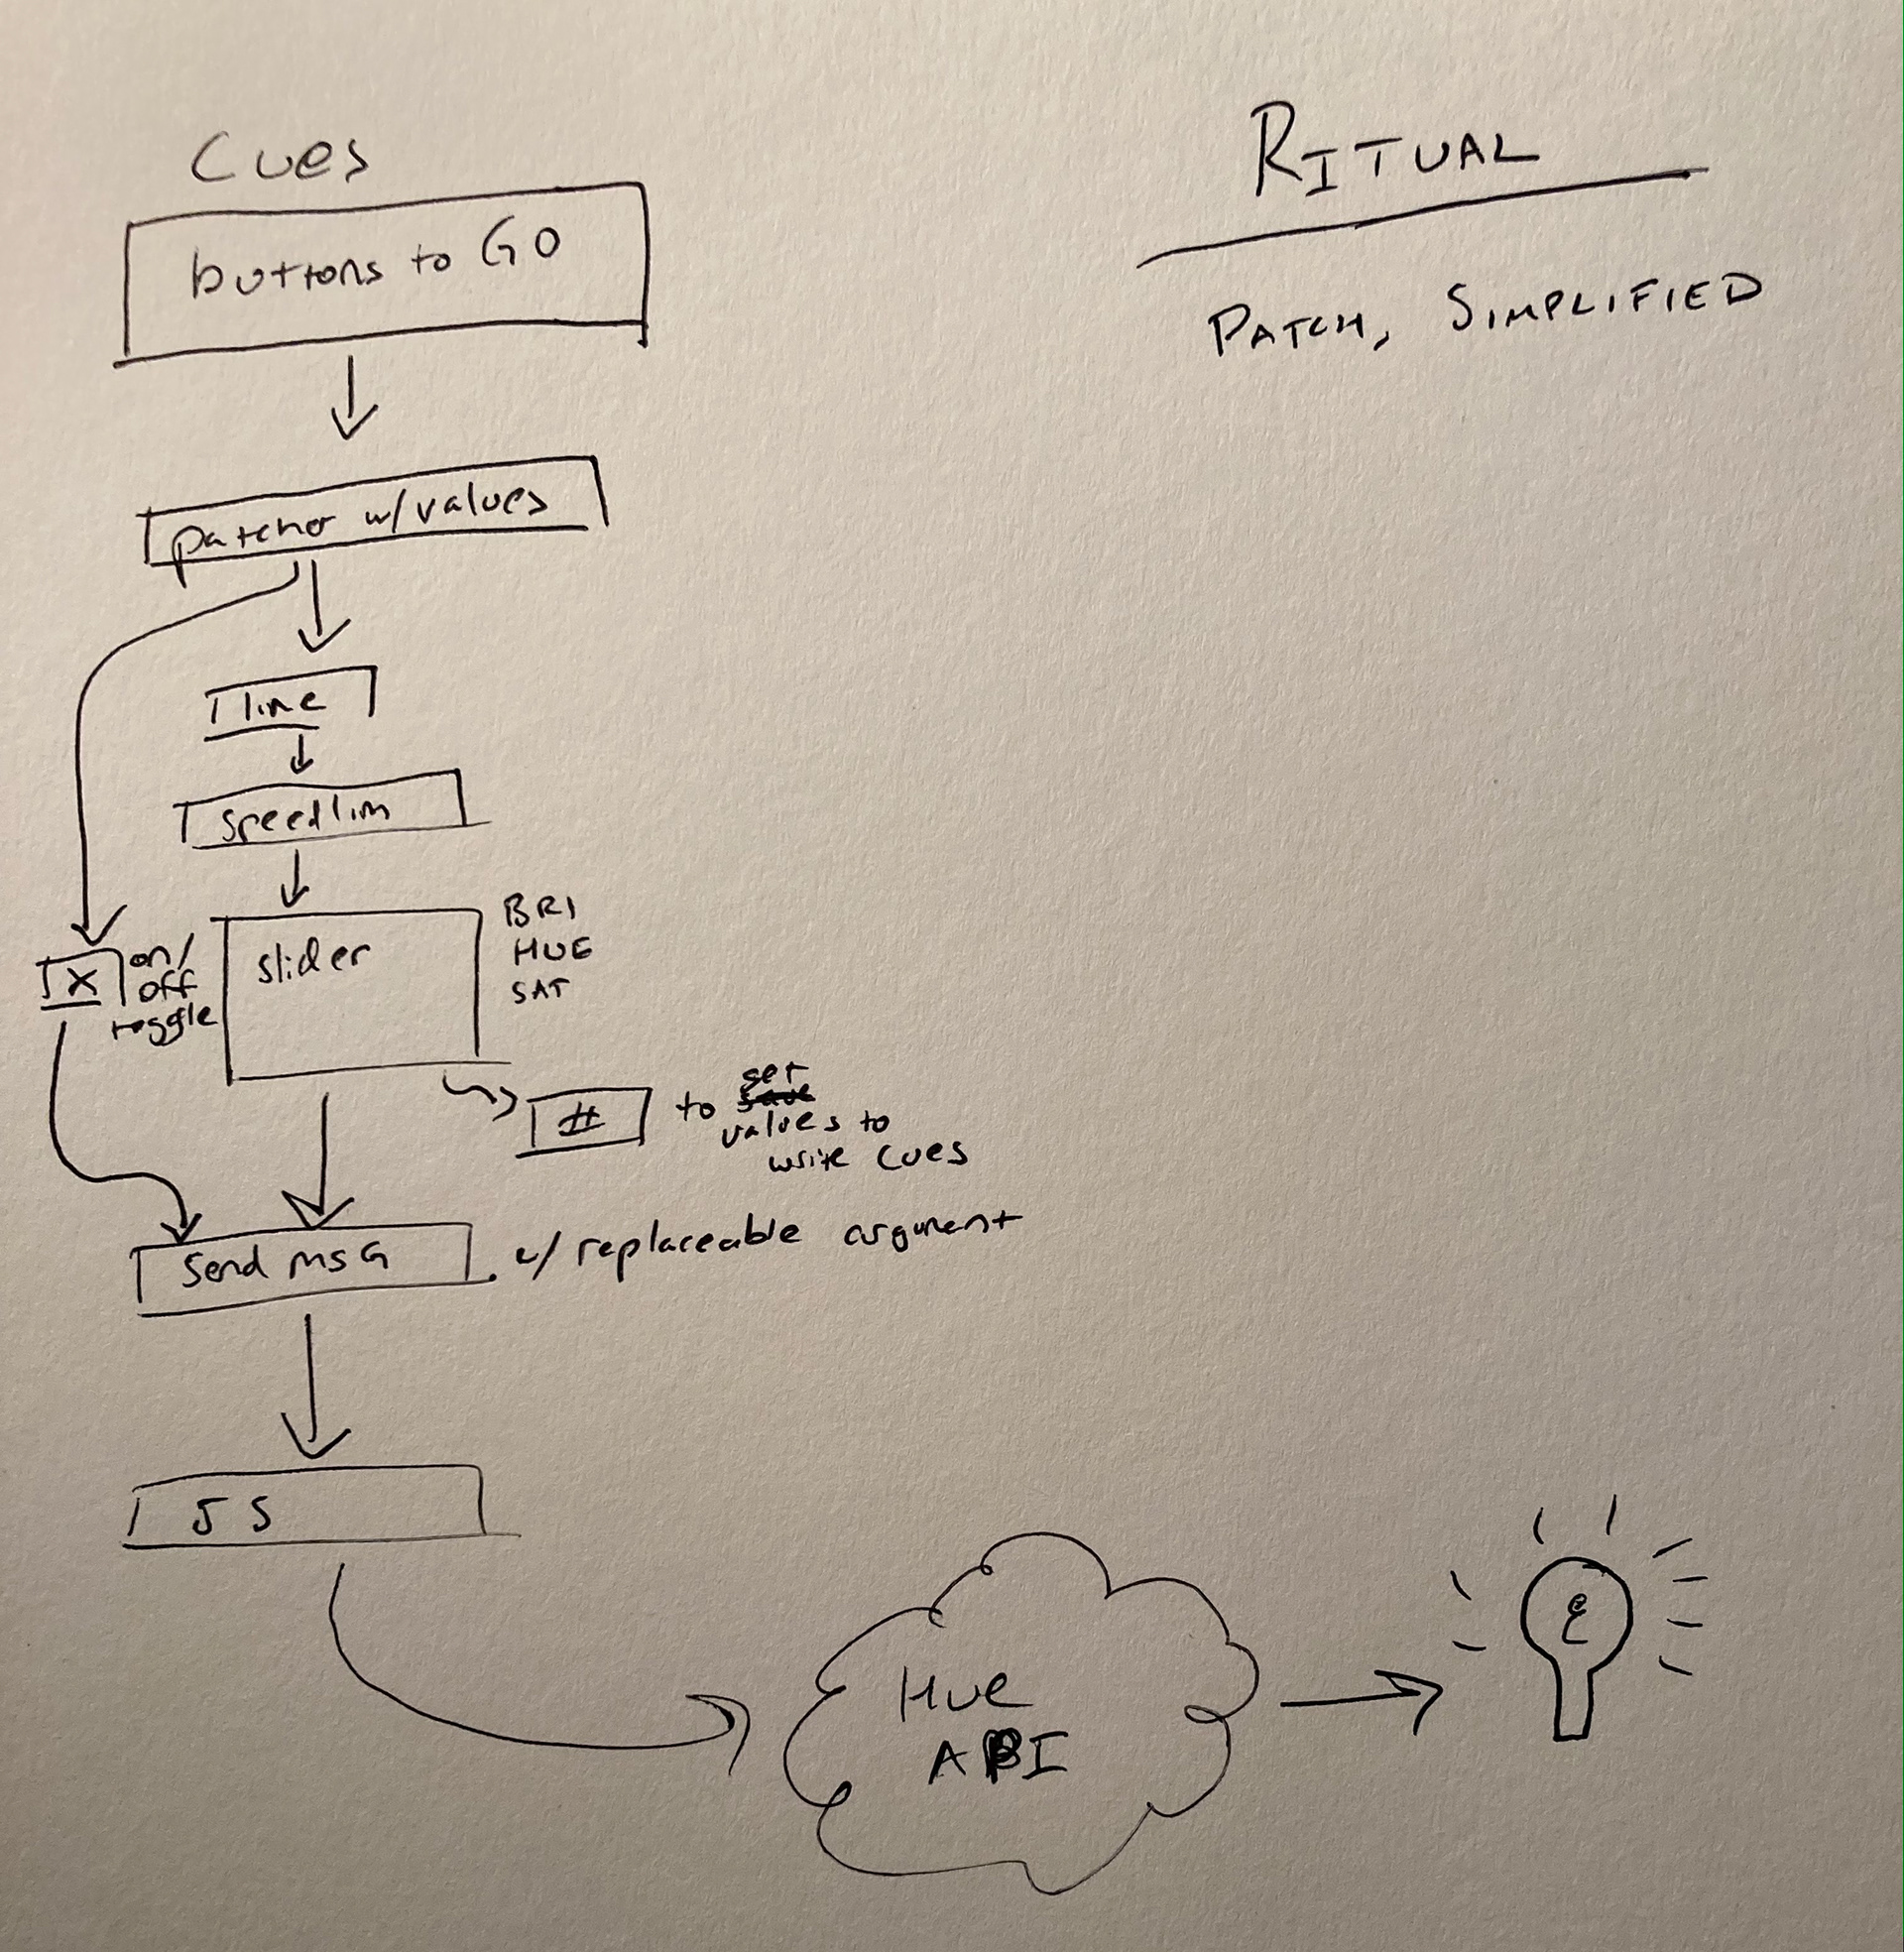 Cues
buttons to GO
RITUAL
PATCH, SIMPLIFIED
patcher w/values
line
speedlim
slider
BRI
HUE
SAT
X
on/
off
toggle
#
to set
save
values to
write cues
Send msG
w/ replaceable argument
JS
Hue
API